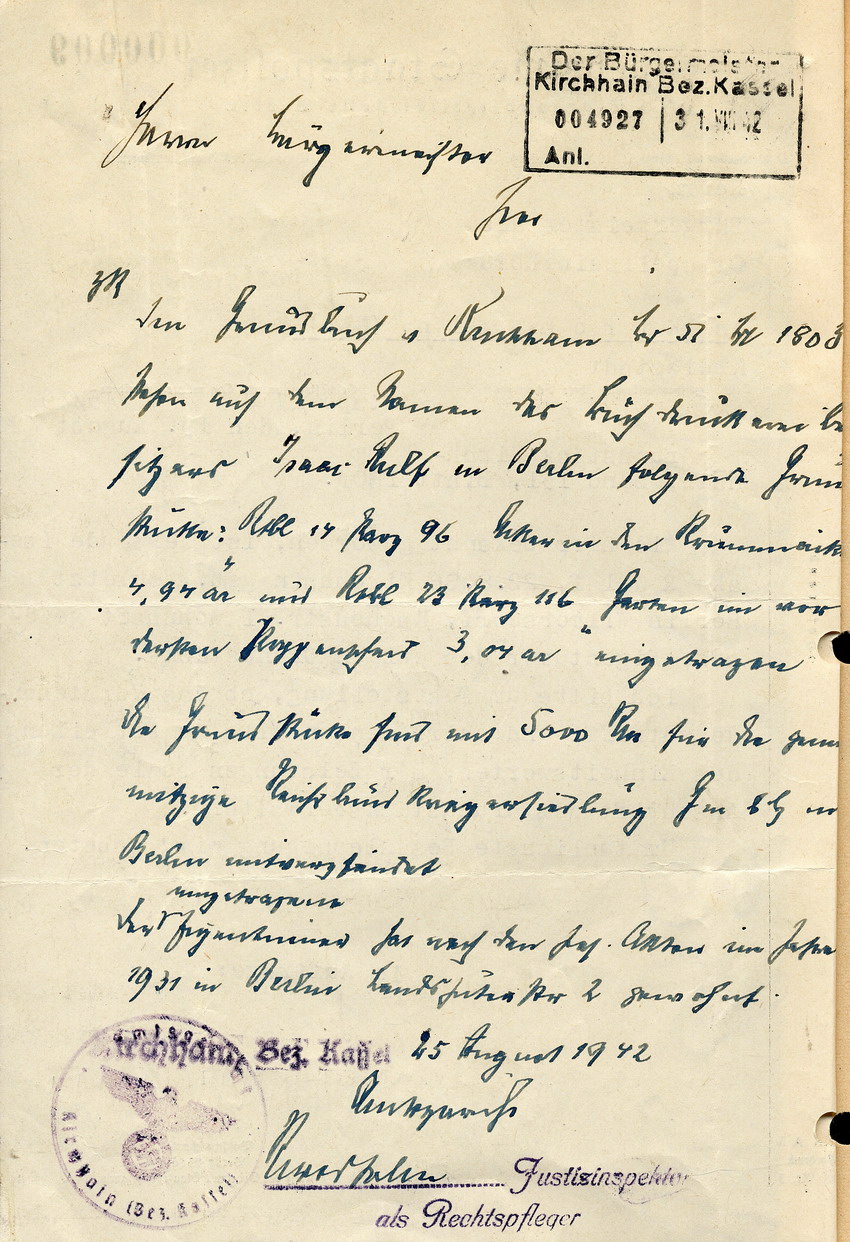 000009
Der Bürgermeister
Kirchhain Bez.Kassel
004927 31.VIII.42
Anl.
Herrn Bürgermeister
hier
Im Grundbuch v Kirchhain Bd 51 Bl 1803
stehen auf dem Namen des Buchdruckereibe
sitzers Isaac Rulf in Berlin folgende Grund
stücke: Ktbl 14 Parz 96 Acker in den
4,94 ar und Ktbl 23 Parz 116 Garten im vor
dersten 3,04 ar " eingetragen
Die Grundstücke sind mit 5000 RM für die gemein
nützige Reichsbundkriegersiedlung GmbH in
Berlin mitverpfändet
eingetragene
Der Eigentümer hat nach den hies. Akten im Jahre
1931 in Berlin Landshuterstr 2 gewohnt.
Kirchhain Bez. Kassel 25 August 1942
Amtsgericht
Justizinspektor
als Rechtspfleger
Amtsgericht
Kirchhain (Bez. Kassel)